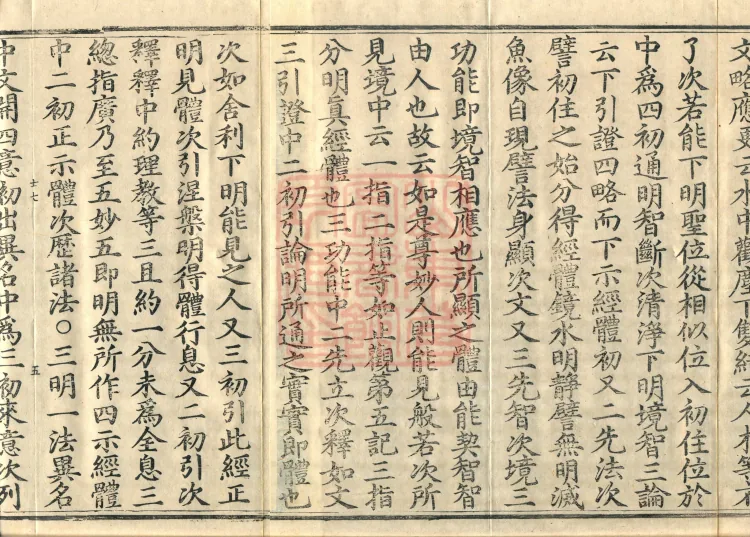 文略應更云水中觀塵下雙
了次若能下明聖位從相似位入初住位於
中爲四初通明智斷次清淨下明境智三論
云下引證四略而下示經體初又二先法次
譬初住之始分得經體鏡水明靜譬無明滅
魚像自現譬法身顯次文又三先智次境三
功能即境智相應也所顯之體由能契智智
由人也故云如是尊妙人則能見般若次所
見境中云一指二指等如止觀第五記三指
分明眞經體也三功能中二先立次釋如文
三引證中二初引論明所通之實實即體也
次如舍利下明能見之人又三初引此經正
明見體次引涅槃明得體行息又二初引次
釋釋中約理教等三且約一分未爲全息三
總指廣乃至五妙五即明無所作四示經體
中二初正示體次歷諸法〇三明一法異名
中文開四意初出異名中爲三初來意次列
士七
五